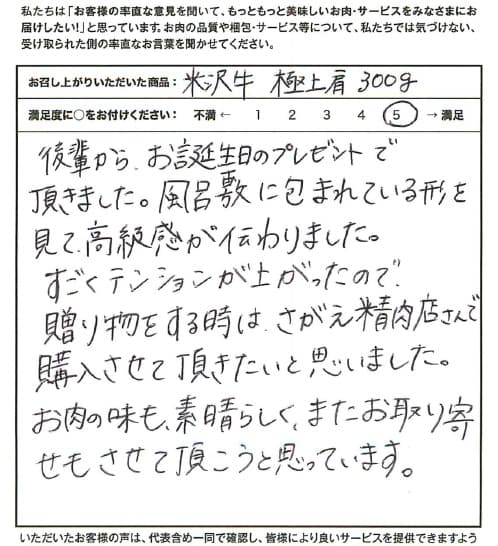 私たちは「お客様の率直な意見を聞いて、もっともっと美味しいお肉・サービスをみなさまにお
届けしたい！」と思っています。お肉の品質や梱包・サービス等について、私たちでは気づけない、
受け取られた側の率直なお言葉を聞かせてください。
お召し上がりいただいた商品：米沢牛 極上肩 300g
満足度に○をお付けください： 不満 ← 1 2 3 4 5 → 満足
後輩から、お誕生日のプレゼントで
頂きました。風呂敷に包まれている形を
見て、高級感が伝わりました。
すごくテンションが上がったので、
贈り物をする時は、さがえ精肉店さんで
購入させて頂きたいと思いました。
お肉の味も、素晴らしく、またお取り寄
せもさせて頂こうと思っています。
いただいたお客様の声は、代表含め一同で確認し、皆様により良いサービスを提供できますよう